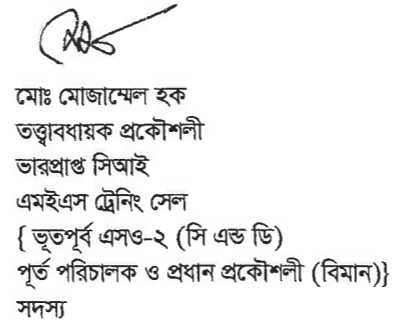 মোঃ মোজাম্মেল হক
তত্ত্বাবধায়ক প্রকৌশলী
ভারপ্রাপ্ত সিআই
এমইএস ট্রেনিং সেল
{ ভূতপূর্ব এসও-২ (সি এন্ড ডি)
পূর্ত পরিচালক ও প্রধান প্রকৌশলী (বিমান)}
সদস্য